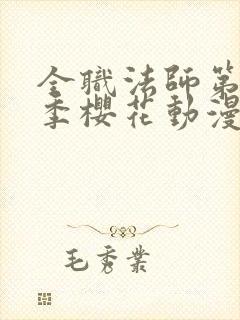 全職法師第
季櫻花動漫
毛秀業